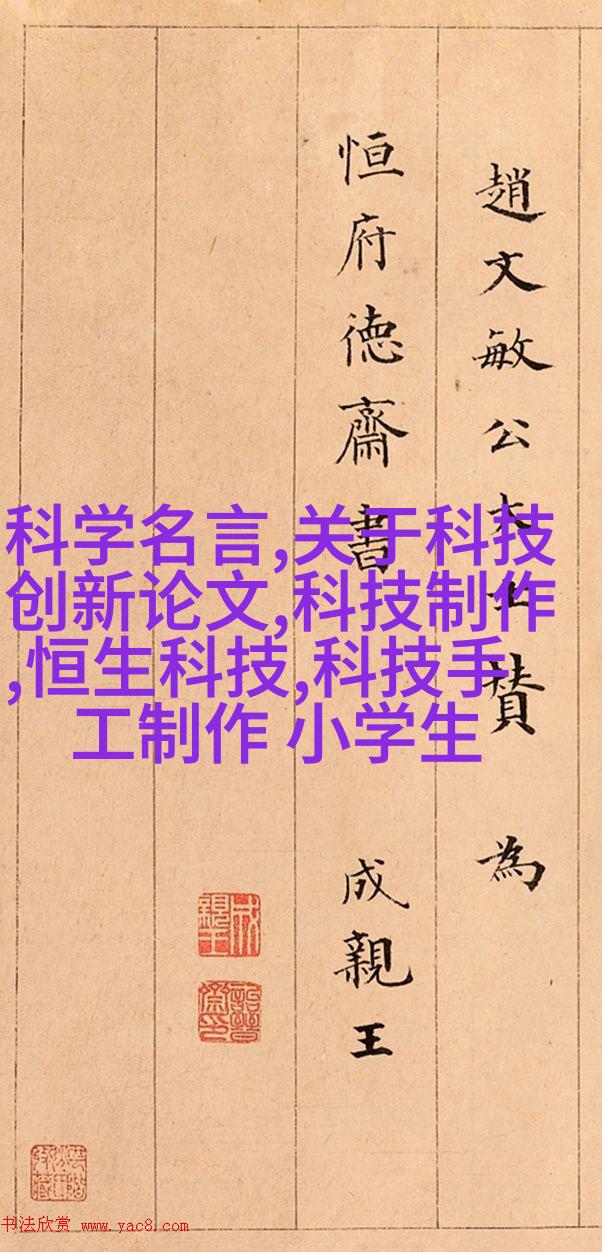 趙文敏公大士贊 為
恒府德齋書 成親王
成親王
詒晉齋印
科学名言,关于科技
创新论文,科技制作
,恒生科技,科技手
工制作 小学生
书法欣赏 www.yac8.com